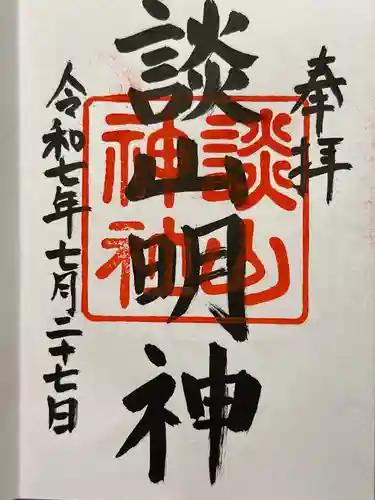 奉拝
談山明神
談山神社
令和七年七月二十七日